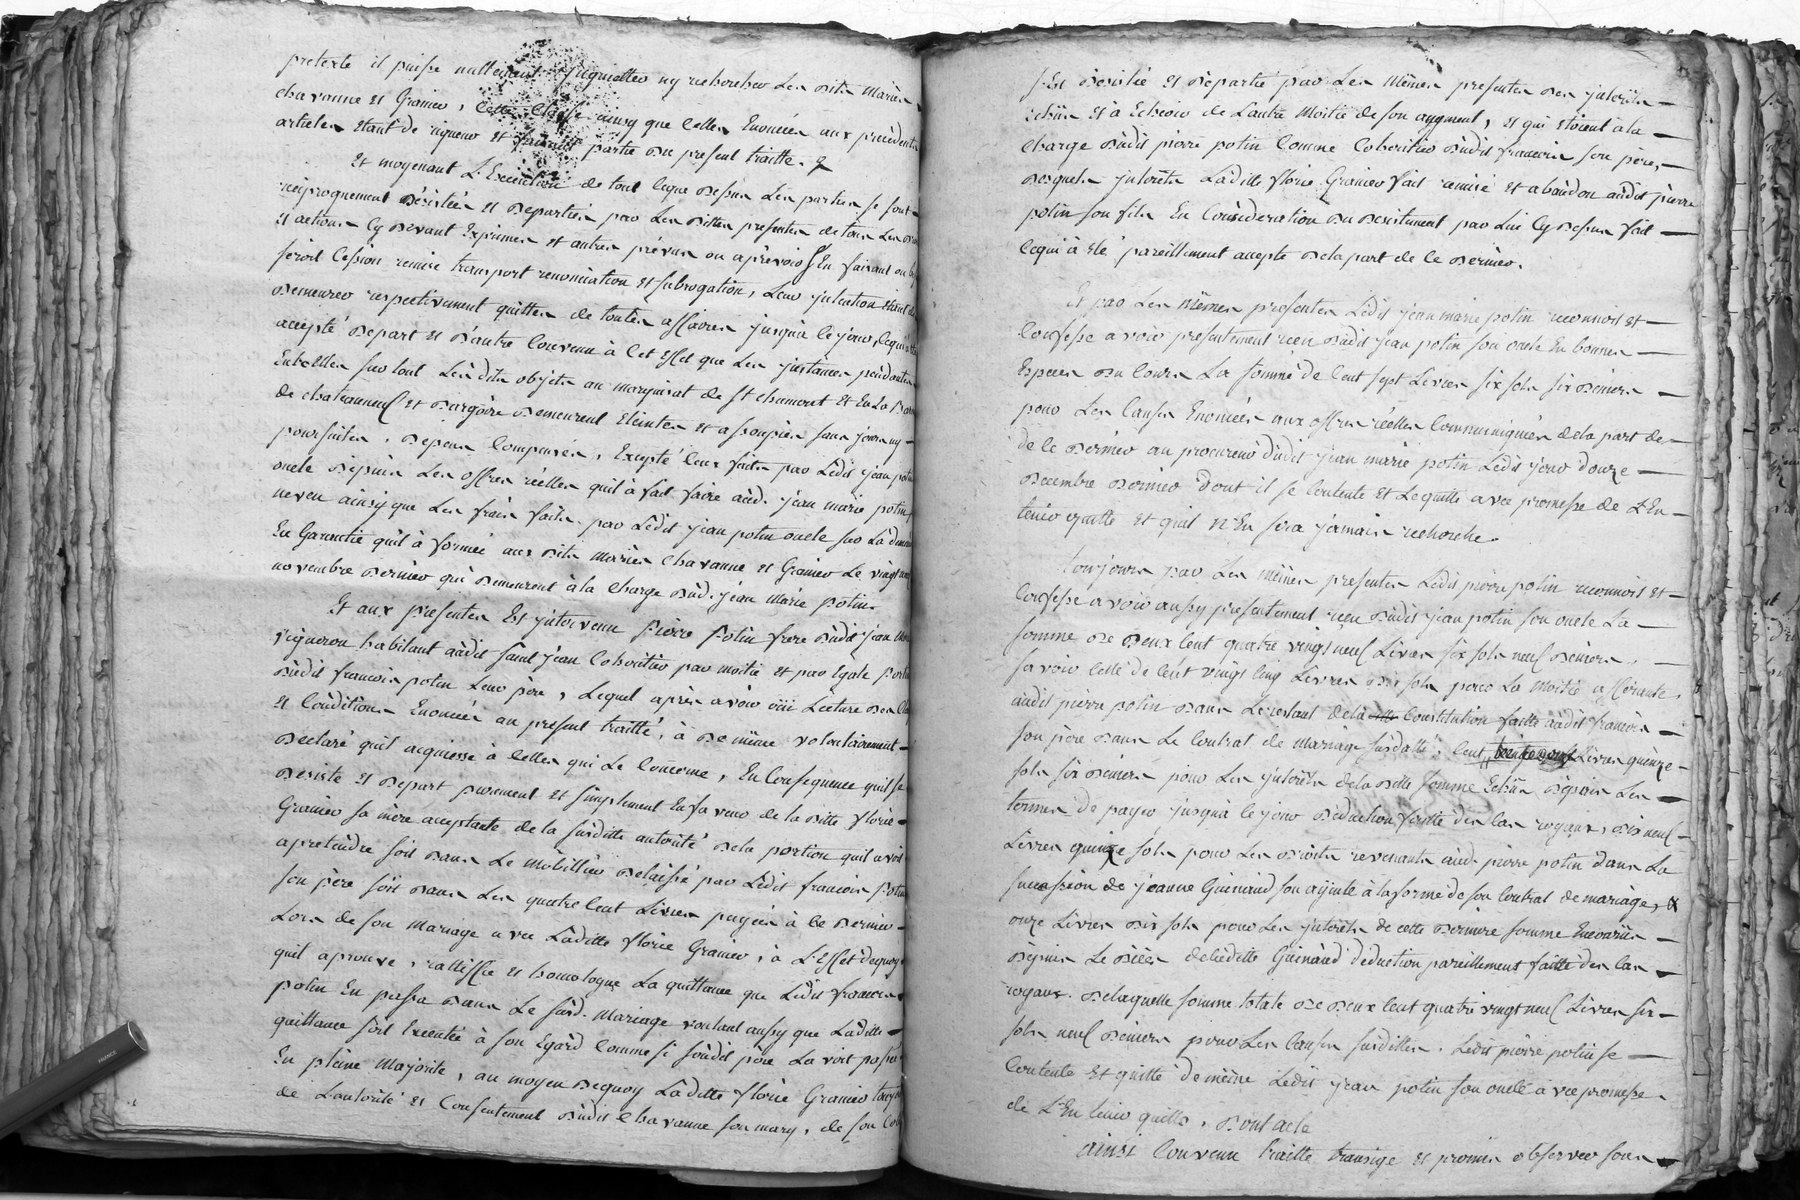 pretexte il puisse nullement inquietter ny rechercher Les dits Mariés
chavanne et Granier, cette clause ainsy que celles Enoncées aux précédents
articles etant de rigueur et faisant partie du present traitté.
Et moyenant L'Execution de tout ceque dessus Les parties se sont
réciproquement désistées et departies par Les dittes presentes de tous Les
et actions cy devant Exprimés et autres prévus ou àprévoir En faisant
cession remise transport renonciation et subrogation, Leur intention étant
demeurer respectivement quittes de toutes affaires jusquà cejour, cequi
accepté depart et dautre convenu à Cet effet que Les instances pendantes
Entrelles sur tout Lesdits objets au marquisat de st chamont et En La
de chateauneuf et dargoire demeurent Eteintes et assoupies sans jour ny
poursuites, dépens Compensés, Excepté ceux faits par Ledit jean potin
oncle depuis Les offres réelles quil à fait faire aud. jean marie potin
neveu ainsy que Les frais faits par Ledit jean potin oncle sur La demande
En Garentie quil à formée aux dits mariés chavanne et Granier Le vingt
novembre dernier qui demeurent à la charge dud. jean Marie potin.
Et aux presentes Est intervenu Pierre Potin frere dudit jean
vigneron habitant audit saint jean Cohéritier par moitié et par Egale
dudit francois potin Leur père, Lequel après avoir oui Lecture des
et Conditions Enoncées au present traitté, à de même volontairement
declaré quil acquiesse à Celles qui Le Concerne, En Consequence quil se
desiste et depart purement et simplement En faveur de la ditte florie
Granier sa mère aceptante de la susditte autorité de la portion quil avoit
apretendre soit dans Le mobillier délaissé par Ledit francois Potin
son père soit dans Les quatre Cent Livres payées à ce dernier
Lors de son Mariage avec Laditte florie Granier, à L'effet dequoy
quil aprouve, rattiffie et homologue La quittance que Ledit francois
potin En passa dans Le susd. Mariage voulant aussy que Laditte
quittance soit Executée à son Egard Comme si sondit père La voit passée
En pleine Majorité, au moyen dequoy Laditte florie Granier
de Lautorité et Consentement dudit chavanne son mary, de son
Est désistée et départie par Les mêmes presentes des intérêts
échus et à Echeoir de Lautre Moitié de son augment, et qui étoient à la
charge dudit pierre potin Comme Cohéritier dudit francois son père,
desquels intérêts Laditte florie Granier fait remise et abandon audit pierre
potin son fils En Considération du desistement par Lui Cy dessus fait
Cequi à été pareillement accepté dela part de ce dernier.
Et par Les mêmes presentes Ledit jean marie potin reconnoit et
Confesse avoir presentement reçu dudit jean potin son oncle En bonnes
Especes du Cours La somme de Cent sept Livres six sols six deniers
pour Les Causes Enoncées aux offres réelles Communiquées dela part de
de ce dernier au procureur dudit jean marie potin Ledit jour douze
decembre dernier dont il se Contente et Lequitte avec promesse de L'En
tenir quitte et quil N'En sera jamais recherché.
Toujours par Les mêmes presentes Ledit pierre potin reconnoit et
Confesse avoir aussy presentement reçu dudit jean potin son oncle La
somme de deux Cent quatre vingt neuf Livres six sols neuf deniers,
savoir Celle de Cent vingt Cinq Livres dix sols pour La Moitié afferante
audit pierre potin dans Lerestant dela Constitution faitte audit francois
son père dans Le Contrat de mariage susdatté; Cent Livres quinze
sols six deniers pour Les intérêts dela ditte somme Echus depuis Les
termes de payer jusquà cejour déduction faitte des Cas royaux, dix neuf
Livres quinze sols pour Les droits revenants aud. pierre potin dans La
succession de jeanne Guinaud son ayeule à la forme de son Contrat de mariage, &
onze Livres dix sols pour Les intérêts de cette derniere somme Encourus
depuis Le décès de ladite Guinaud déduction pareillement faitte des Cas
royaux. delaquelle somme totale de deux Cent quatre vingt neuf Livres six
sols neuf deniers pour Les Causes susdittes, Ledit pierre potin se
Contente et quitte de même Ledit jean potin son oncle avec promesse
de L'En tenir quitte, dont acte
ainsi Convenu traitté transigé et promis observer sous